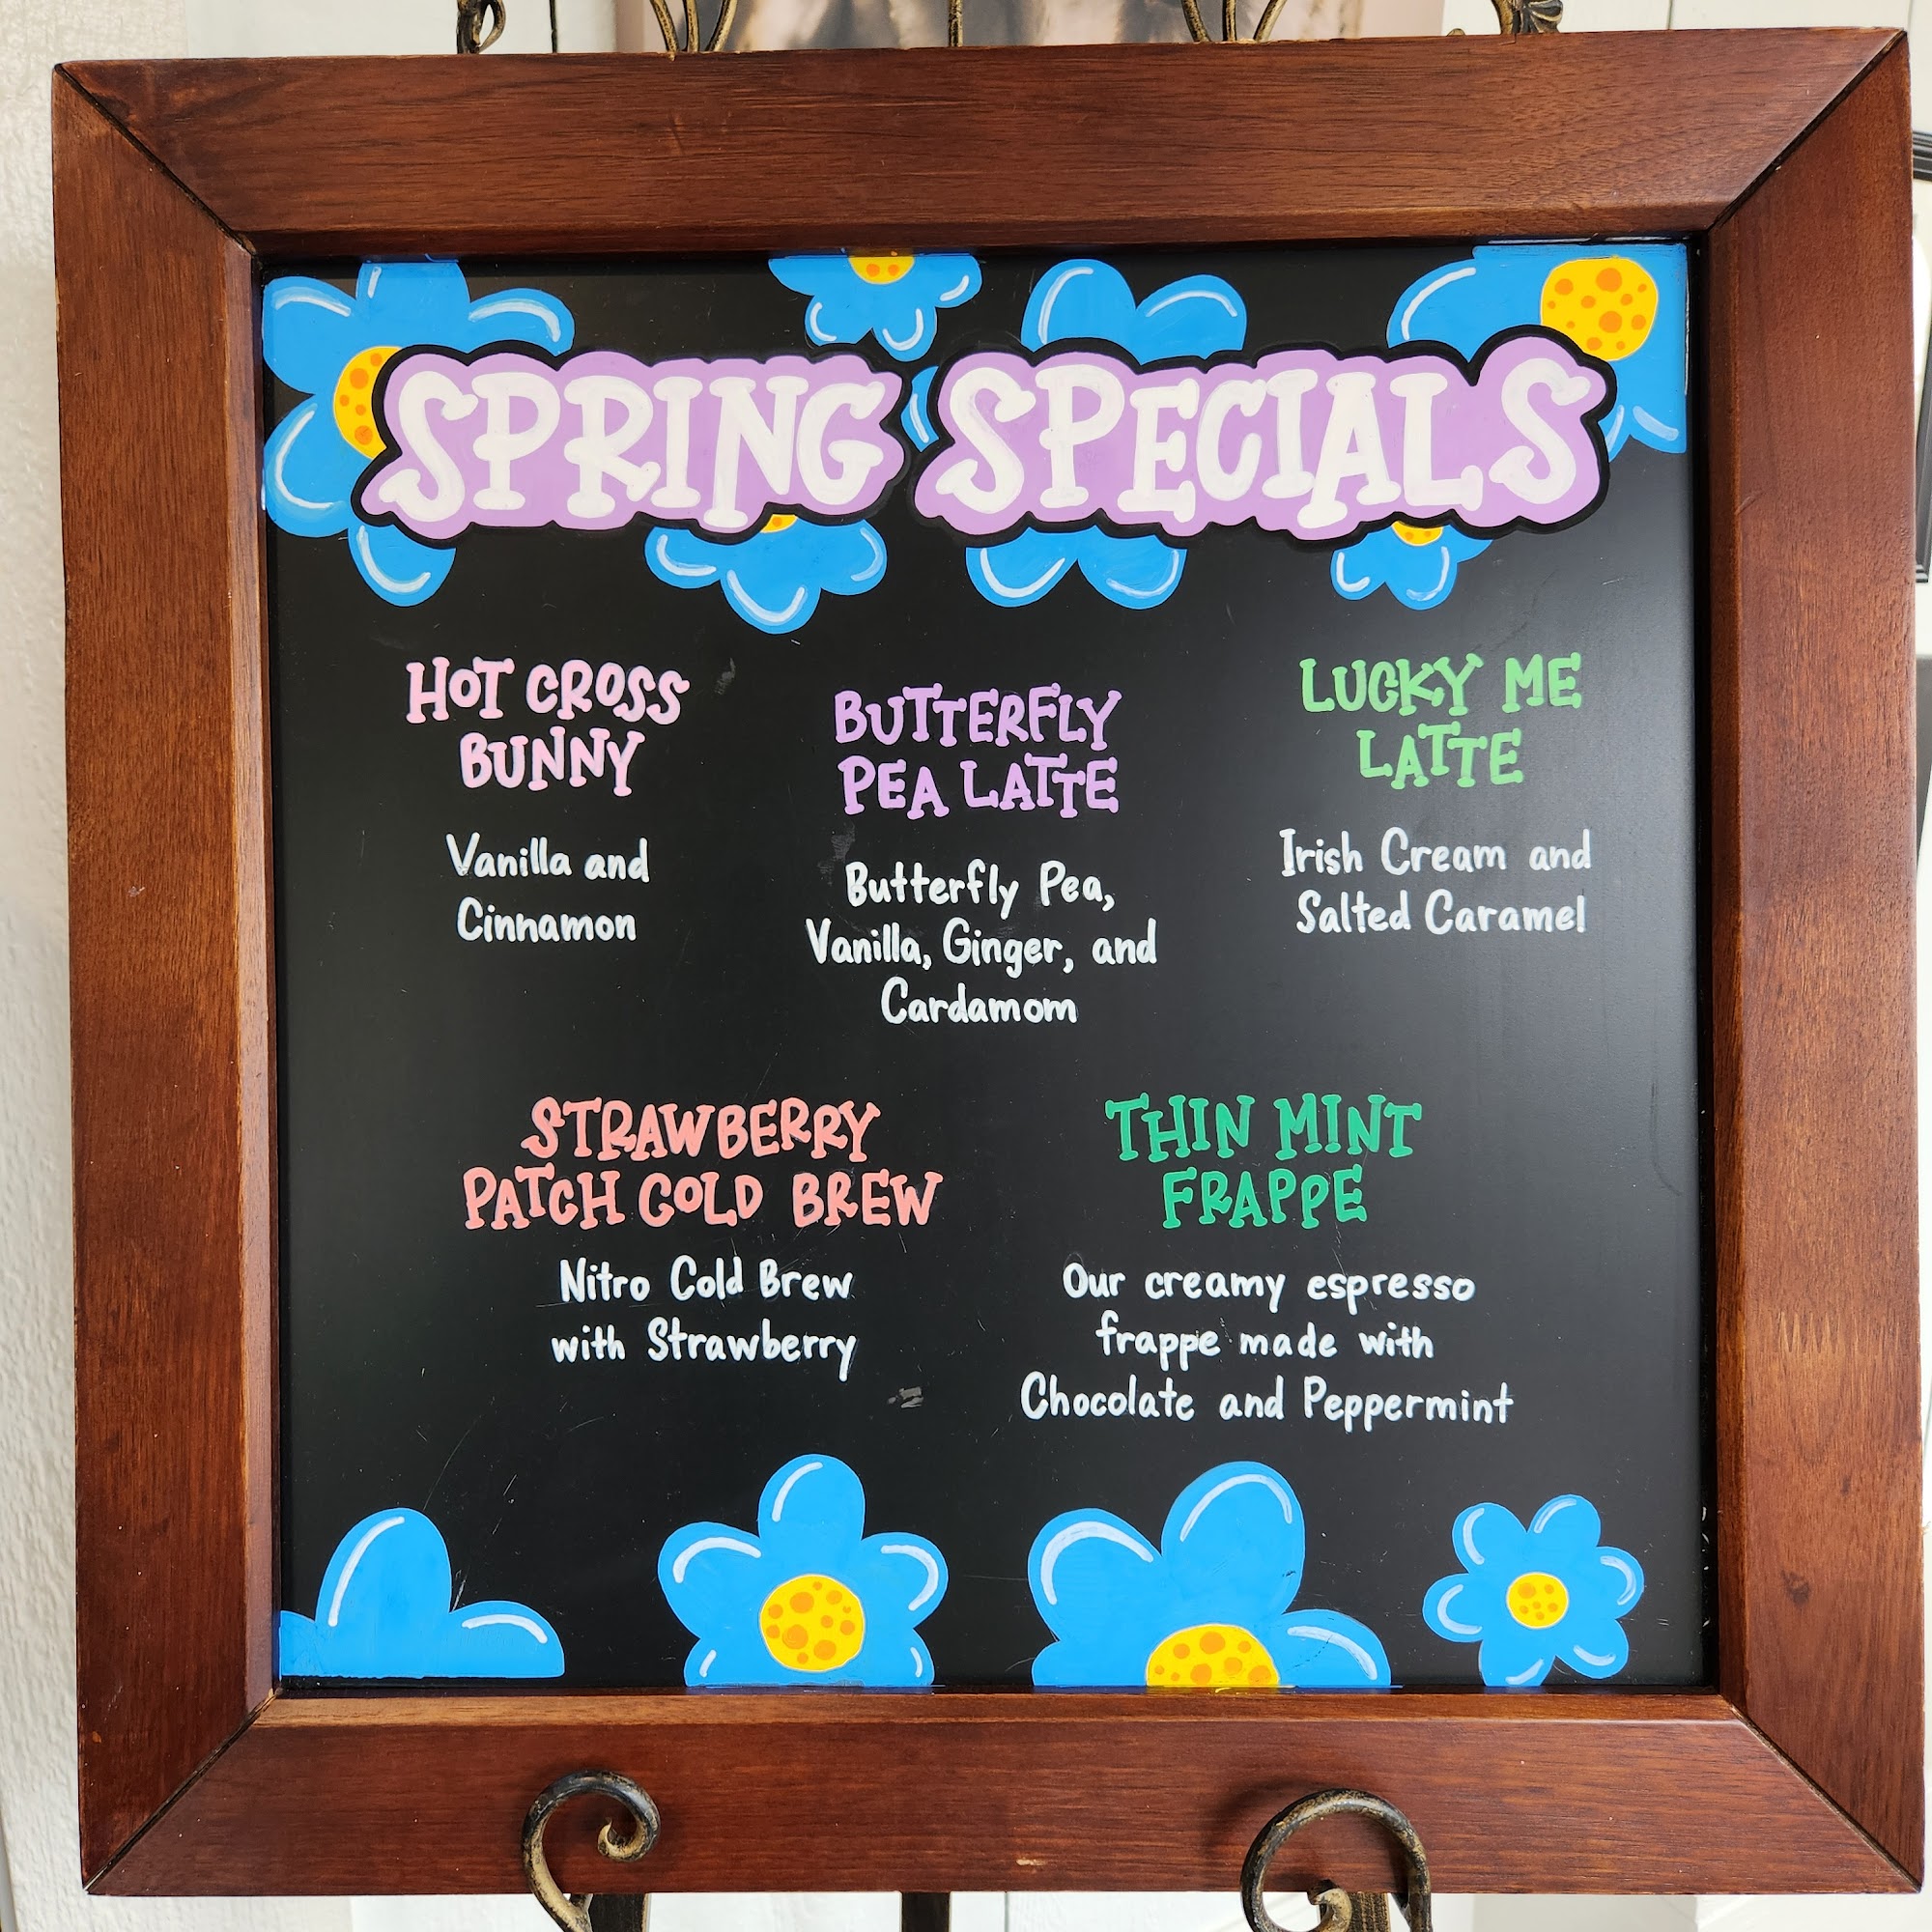 SPRING SPECIALS
HOT CROSS
BUNNY
Vanilla and
Cinnamon
BUTTERFLY
PEA LATTE
Butterfly Pea,
Vanilla, Ginger, and
Cardamom
LUCKY ME
LATTE
Irish Cream and
Salted Caramel
STRAWBERRY
PATCH COLD BREW
Nitro Cold Brew
with Strawberry
THIN MINT
FRAPPE
Our creamy espresso
frappe made with
Chocolate and Peppermint